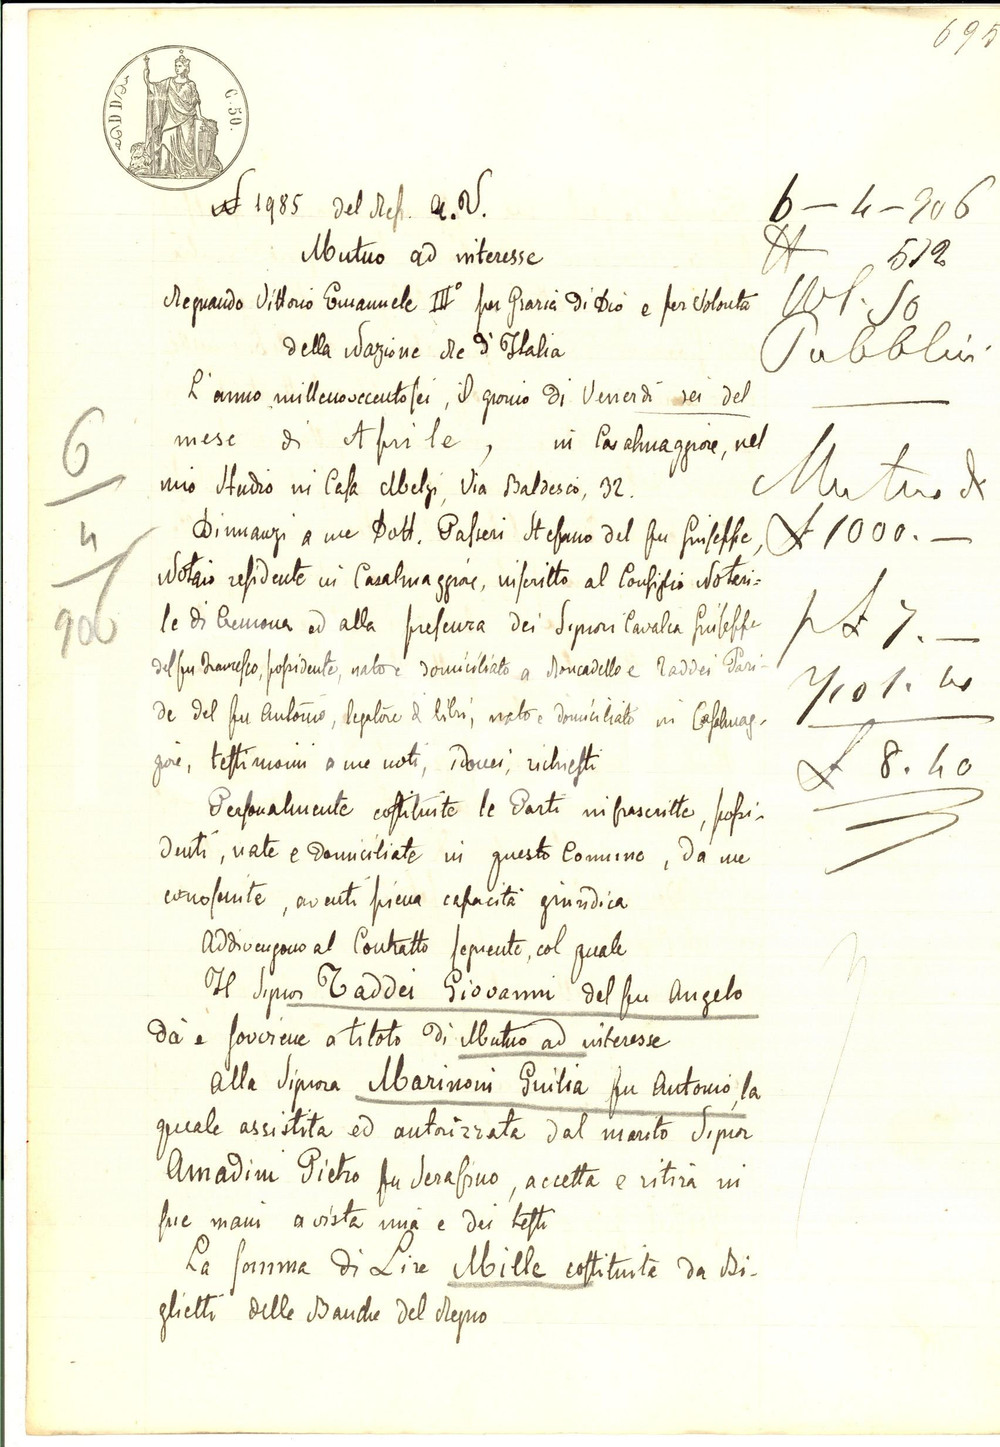 695
C. 50.
N 1985 del Rep. A.V.
Mutuo ad interesse
Regnando Vittorio Emanuele III° per Grazia di Dio e per Volontà
della Nazione Re d'Italia
L'anno millenovecentosei, il giorno di Venerdì sei del
mese di Aprile, in Casalmaggiore, nel
mio Studio in Casa Melzi, Via Baldesco, 32.
Dinnanzi a me Dott. Passeri Stefano del fu Giuseppe,
Notaio residente in Casalmaggiore, inscritto al Consiglio Notari=
le di Cremona ed alla presenza dei Signori Cavalca Giuseppe
del fu Francesco, possidente, nato e domiciliato a Roncadello e Taddei Pari-
de del fu Antonio, legatore di libri, nato e domiciliato in Casalmag-
giore, testimoni a me noti, idonei, richiesti
Personalmente costituite le Parti infrascritte, possi-
denti, nate e domiciliate in questo Comune, da me
conosciute, aventi piena capacità giuridica
Addivengono al Contratto seguente, col quale
Il Signor Taddei Giovanni del fu Angelo
dà e sovviene a titolo di Mutuo ad interesse
alla Signora Marinoni Giulia fu Antonio, la
quale assistita ed autorizzata dal marito Signor
Amadini Pietro fu Serafino, accetta e ritira in
sue mani a vista mia e dei testi
La somma di Lire Mille costituita da Bi-
glietti delle Banche del Regno
6
4
906
6-4-906
N 512
Vol. 50
Pubblici
Mutuo di
£ 1000.-
p £ 7.-
1. 40
£ 8.40